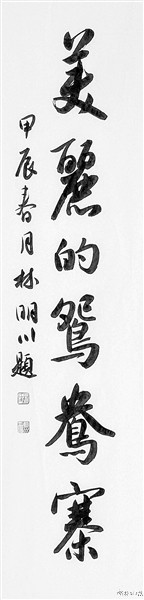 美麗的鸳鸯寨
甲辰春月林明川題